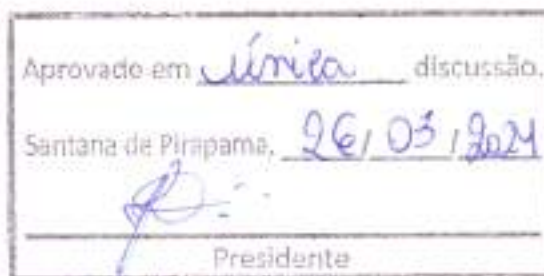 Aprovado em única discussão.
Santana de Pirapama, 26/03/2024
Presidente